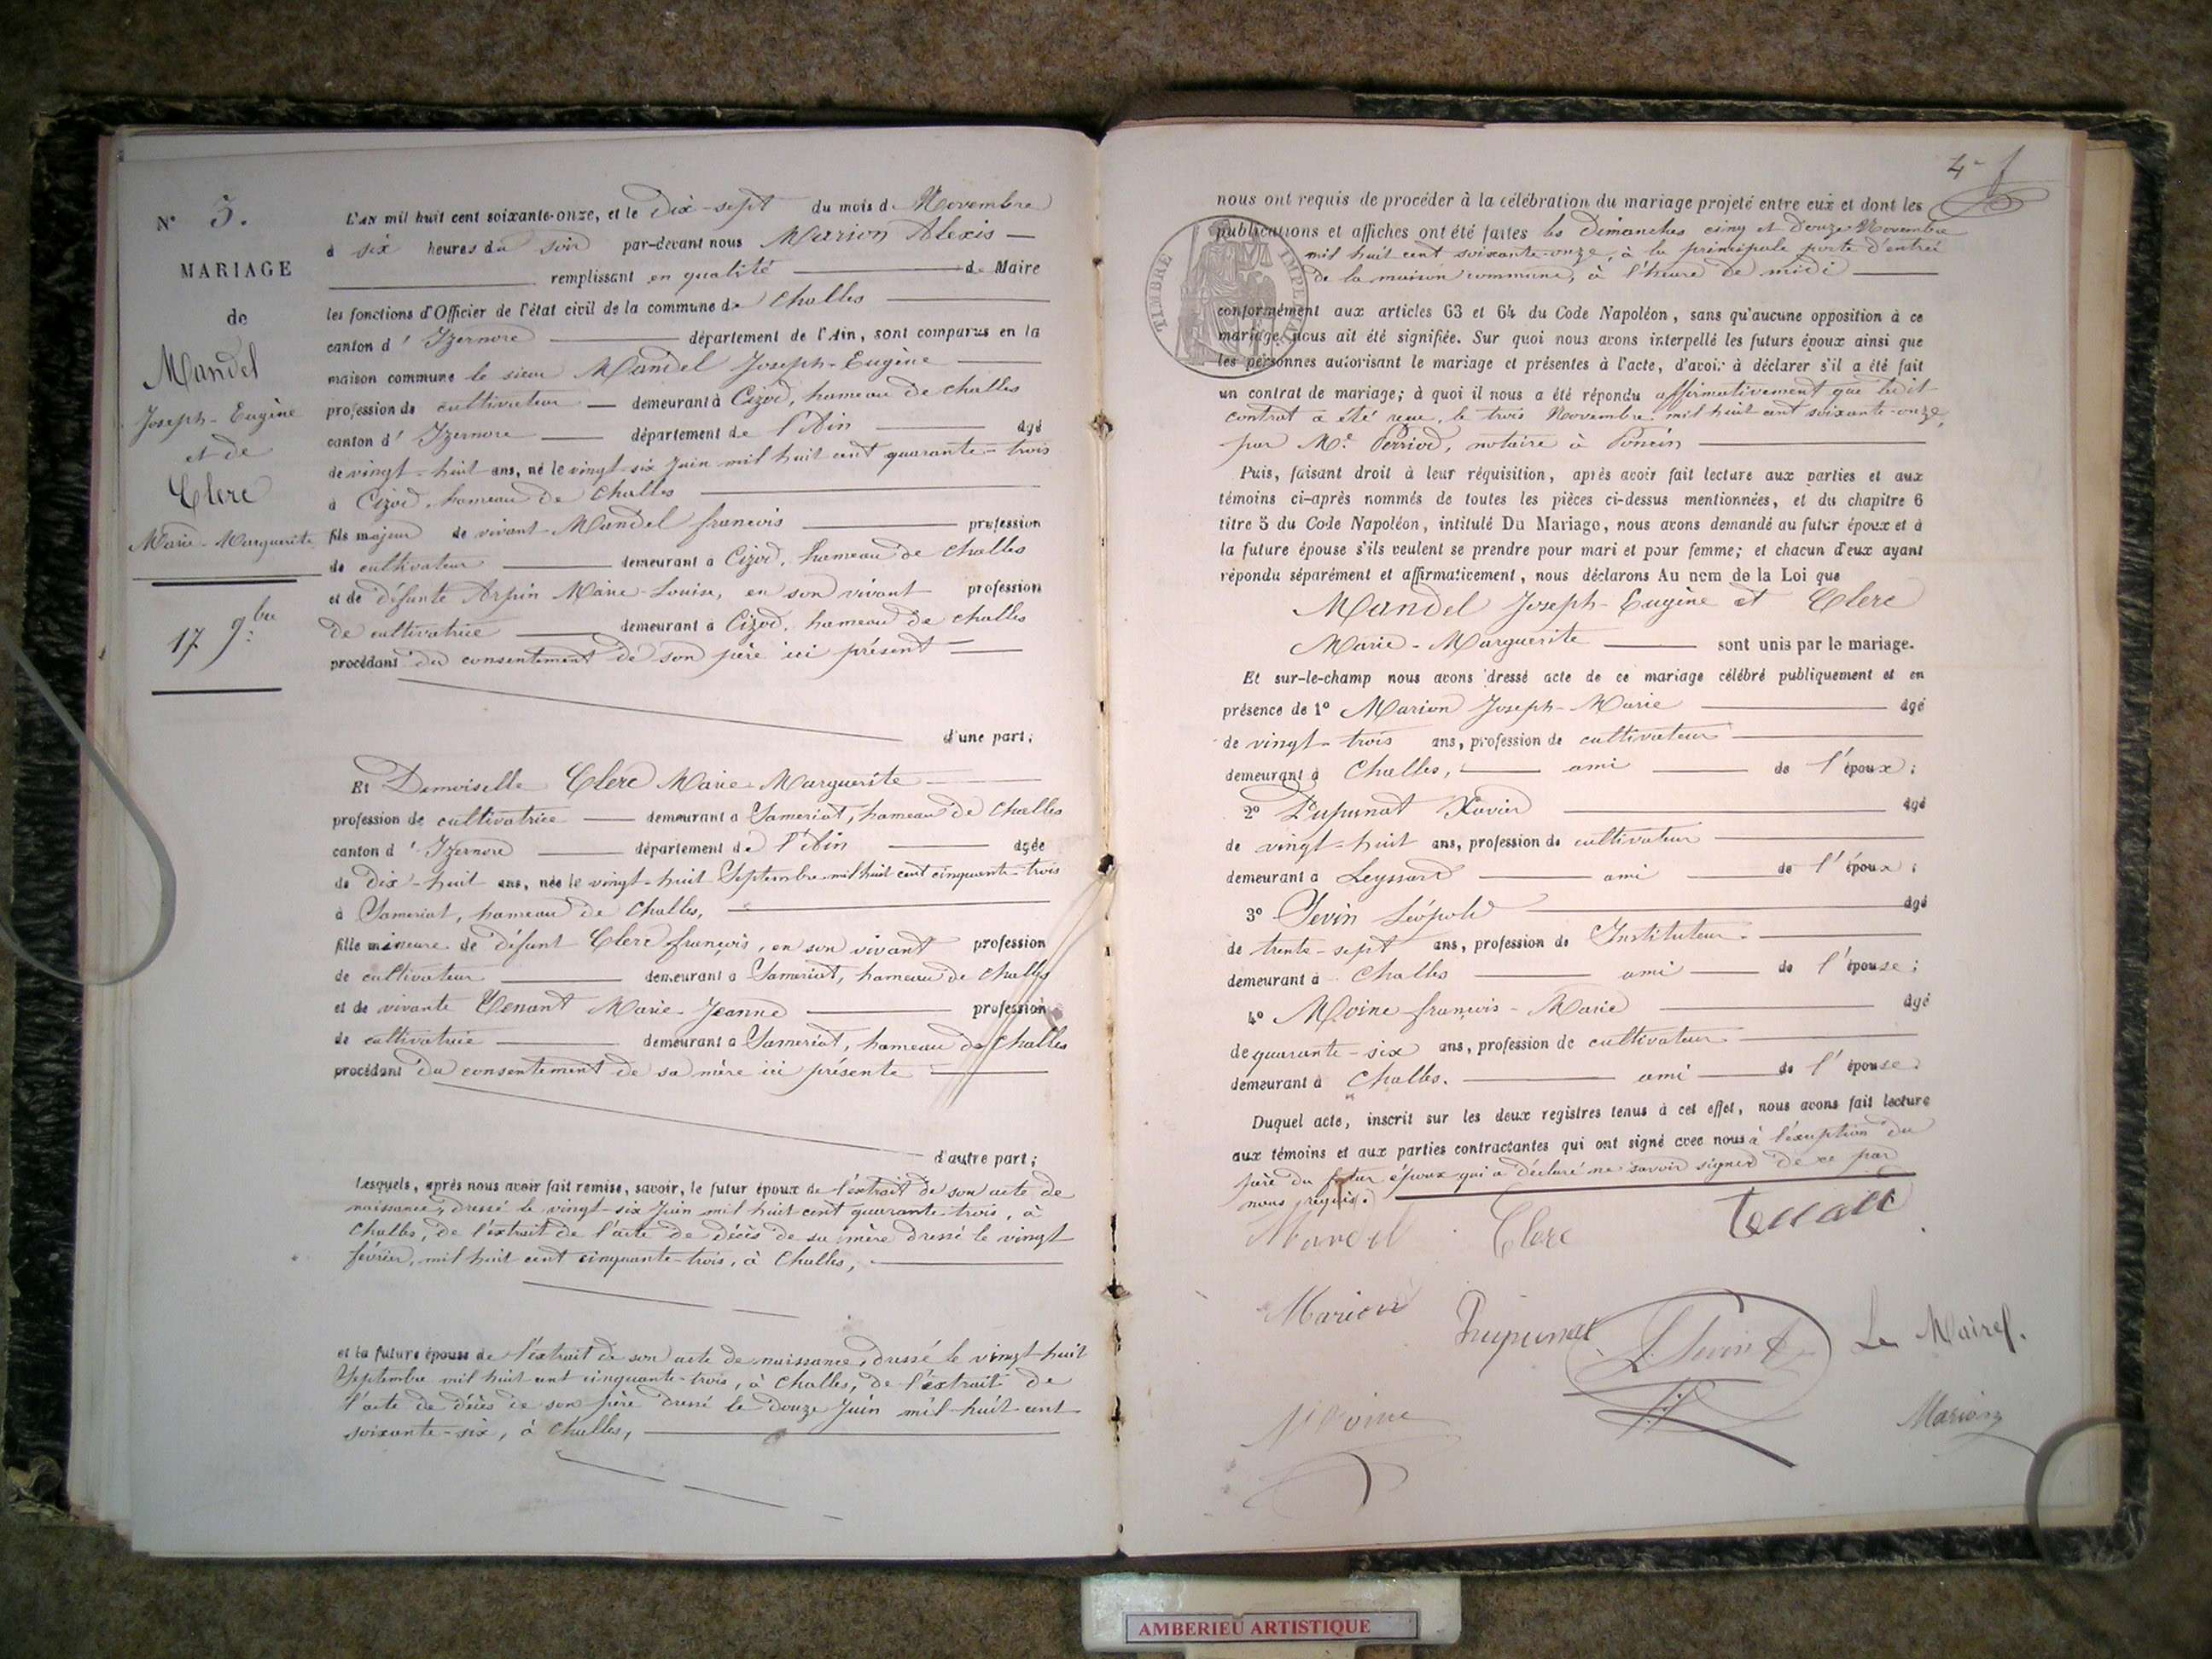 N° 3.
MARIAGE
de
Mandel
Joseph-Eugène
et de
Clerc
Marie-Marguerite
17 9.bre
L'an mil huit cent soixante-onze, et le Dix-sept du mois de Novembre
à six heures du soir par-devant nous Marion Alexis
remplissant en qualité de Maire
les fonctions d'Officier de l'état civil de la commune de Challes
canton d'Izernore département de l'Ain, sont comparus en la
maison commune le sieur Mandel Joseph-Eugène
profession de cultivateur demeurant à Cizod, hameau de Challes
canton d'Izernore département de l'Ain âgé
de vingt-huit ans, né le vingt-six Juin mil huit cent quarante-trois
à Cizod, hameau de Challes
fils majeur de vivant Mandel françois profession
de cultivateur demeurant à Cizod, hameau de Challes
et de défunte Arpin Marie-Louise, en son vivant profession
de cultivatrice demeurant à Cizod, hameau de Challes
procédant du consentement de son père ici présent
d'une part;
Et Demoiselle Clerc Marie-Marguerite
profession de cultivatrice demeurant à Sameriat, hameau de Challes
canton d'Izernore département de l'Ain âgée
de dix-huit ans, née le vingt-huit Septembre mil huit cent cinquante-trois
à Sameriat, hameau de Challes,
fille mineure de défunt Clerc françois, en son vivant profession
de cultivateur demeurant à Sameriat, hameau de Challes
et de vivante Tenant Marie-Jeanne profession
de cultivatrice demeurant à Sameriat, hameau de Challes
procédant du consentement de sa mère ici présente
d'autre part;
Lesquels, après nous avoir fait remise, savoir, le futur époux de l'extrait de son acte de
naissance, dressé le vingt-six Juin mil huit cent quarante-trois, à
Challes, de l'extrait de l'acte de décès de sa mère dressé le vingt
février, mil huit cent cinquante-trois, à Challes,
et la future épouse de l'extrait de son acte de naissance, dressé le vingt-huit
Septembre mil huit cent cinquante-trois, à Challes, de l'extrait de
l'acte de décès de son père dressé le douze Juin mil-huit-cent
soixante-six, à Challes,
4e
nous ont requis de procéder à la célébration du mariage projeté entre eux et dont les
publications et affiches ont été faites les Dimanches cinq et douze Novembre
mil huit cent soixante-onze, à la principale porte d'entrée
de la maison commune, à l'heure de midi
TIMBRE IMPERIAL
conformément aux articles 63 et 64 du Code Napoléon, sans qu'aucune opposition à ce
mariage nous ait été signifiée. Sur quoi nous avons interpellé les futurs époux ainsi que
les personnes autorisant le mariage et présentes à l'acte, d'avoir à déclarer s'il a été fait
un contrat de mariage; à quoi il nous a été répondu affirmativement que ledit
contrat a été reçu, le trois Novembre mil huit cent soixante-onze,
par Me. Perriod, notaire à Poncin
Puis, faisant droit à leur réquisition, après avoir fait lecture aux parties et aux
témoins ci-après nommés de toutes les pièces ci-dessus mentionnées, et du chapitre 6
titre 5 du Code Napoléon, intitulé Du Mariage, nous avons demandé au futur époux et à
la future épouse s'ils veulent se prendre pour mari et pour femme; et chacun d'eux ayant
répondu séparément et affirmativement, nous déclarons Au nom de la Loi que
Mandel Joseph-Eugène et Clerc
Marie-Marguerite sont unis par le mariage.
Et sur-le-champ nous avons dressé acte de ce mariage célébré publiquement et en
présence de 1° Marion Joseph-Marie âgé
de vingt-trois ans, profession de cultivateur
demeurant à Challes, ami de l'époux;
2° Pupunat Xavier âgé
de vingt-huit ans, profession de cultivateur
demeurant à Leyssard ami de l'époux;
3° Sevin Léopold âgé
de trente-sept ans, profession de Instituteur
demeurant à Challes ami de l'épouse;
4° Moine françois-Marie âgé
de quarante-six ans, profession de cultivateur
demeurant à Challes. ami de l'épouse.
Duquel acte, inscrit sur les deux registres tenus à cet effet, nous avons fait lecture
aux témoins et aux parties contractantes qui ont signé avec nous à l'exception du
père du futur époux qui a déclaré ne savoir signer de ce par
nous requis.
Mandel Clerc tenant
Marion Pupunat L. Sevin Le Maire
Moine Marion
AMBERIEU ARTISTIQUE